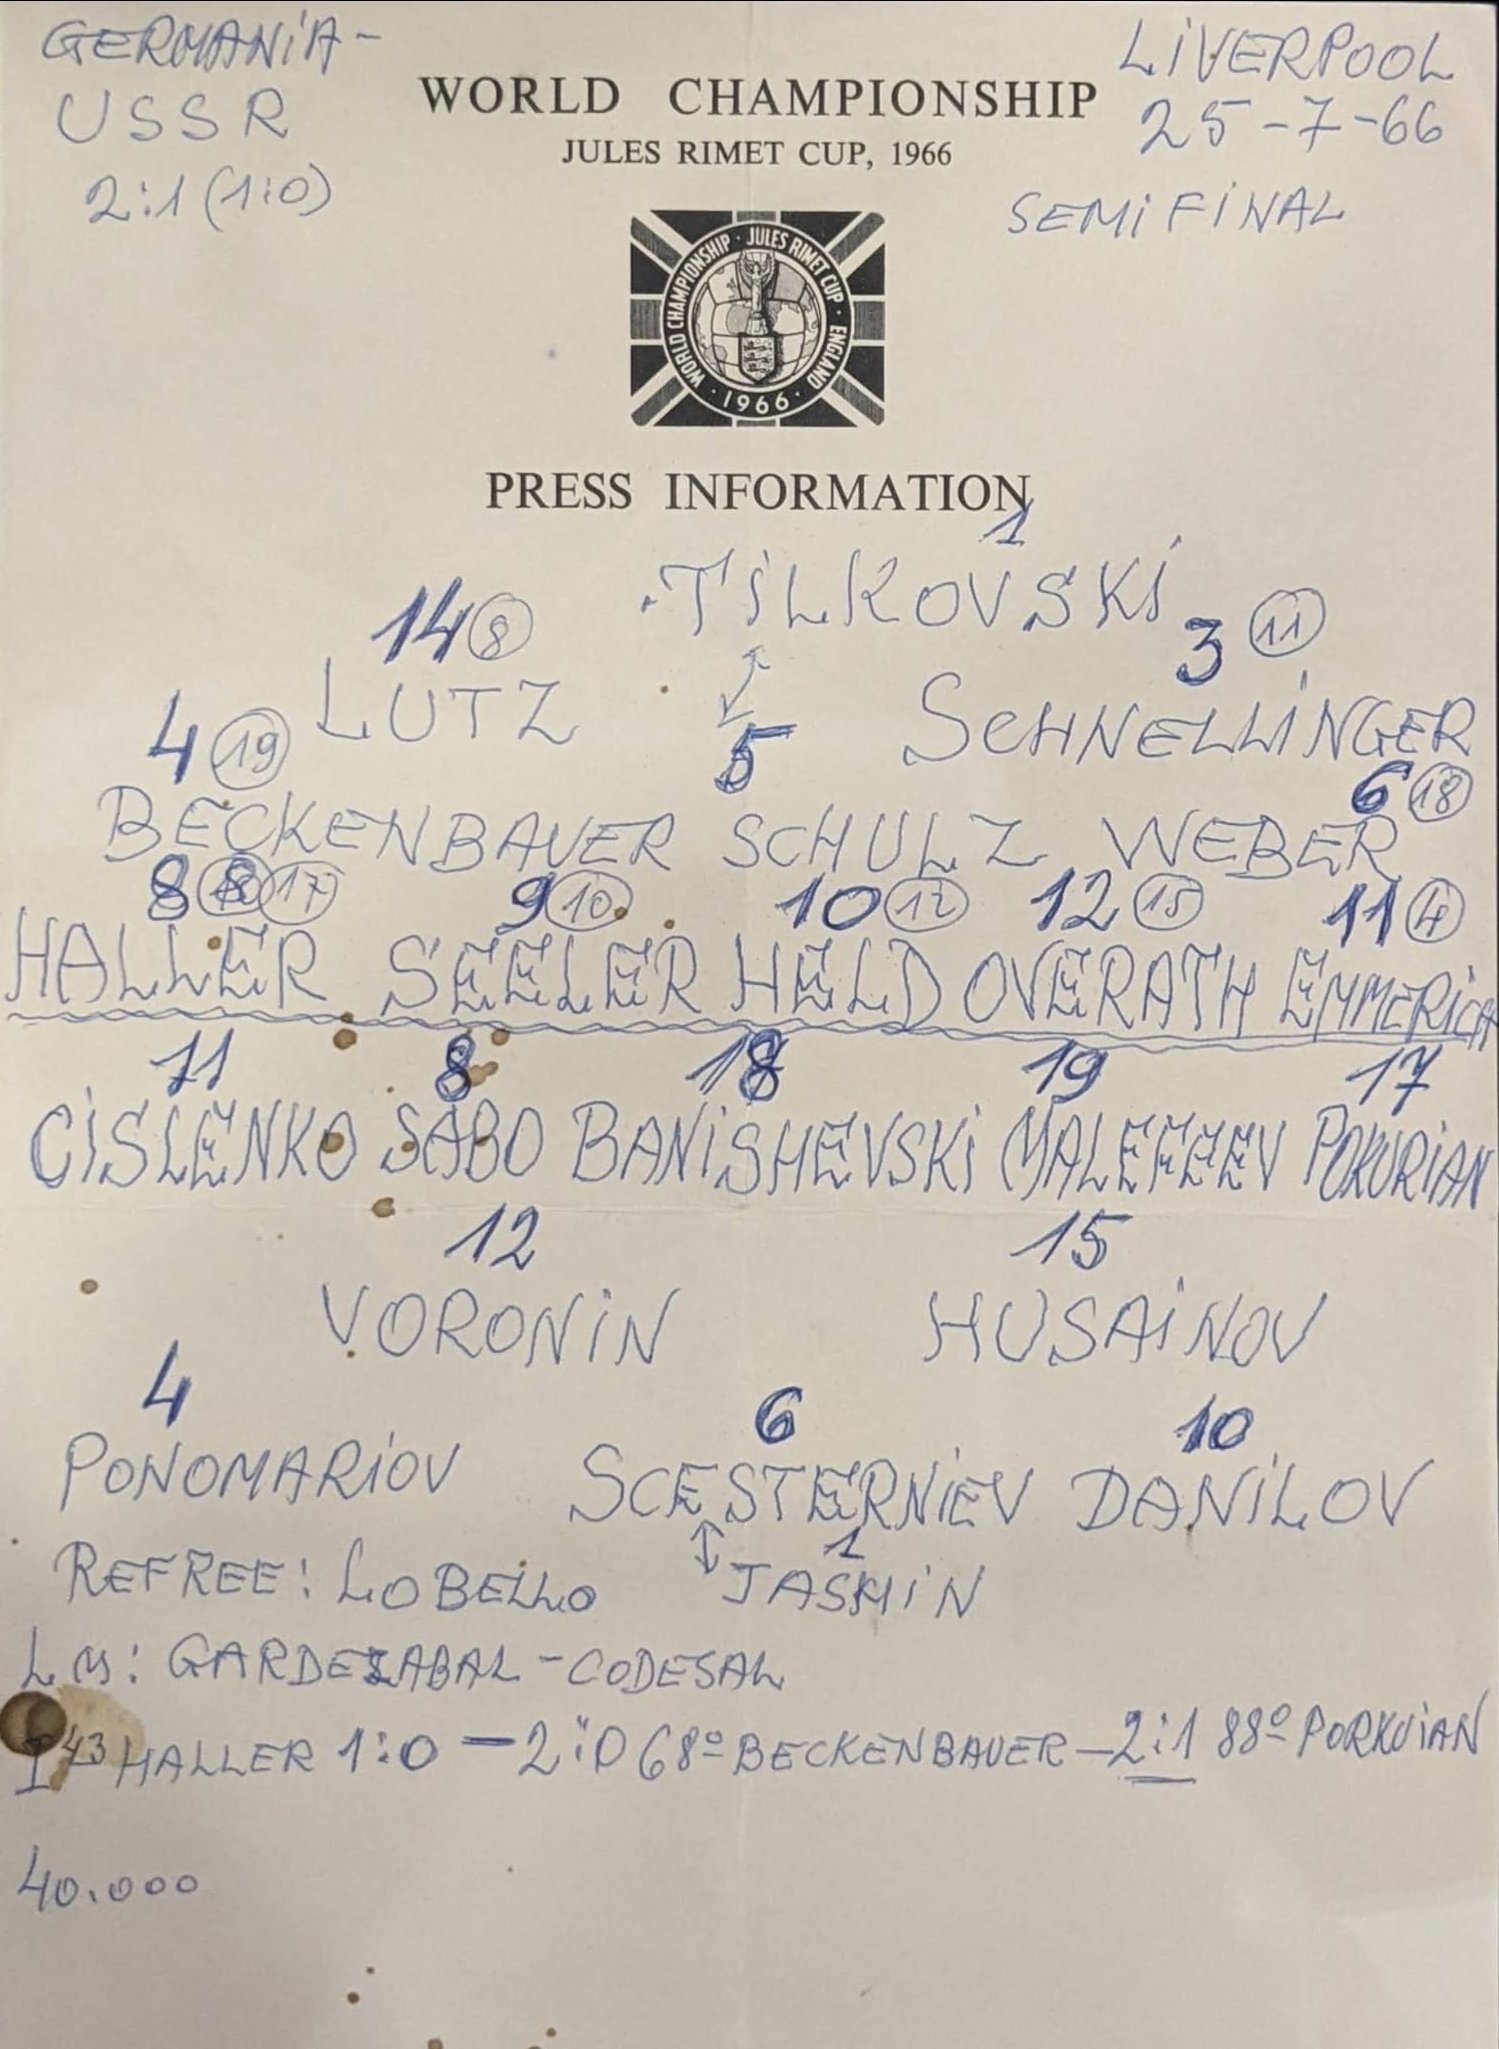 GERMANIA-
USSR
2:1 (1:0)
LIVERPOOL
25-7-66
SEMIFINAL
WORLD CHAMPIONSHIP
JULES RIMET CUP, 1966
WORLD CHAMPIONSHIP · JULES RIMET CUP · ENGLAND
· 1966 ·
PRESS INFORMATION
1
TILKOVSKI
14 8 3 11
LUTZ SCHNELLINGER
4 19 5 6 18
BECKENBAUER SCHULZ WEBER
8 17 9 10 10 12 12 15 11 4
HALLER SEELER HELD OVERATH EMMERICH
11 8 18 19 17
CISLENKO SABO BANISHEVSKI MALEFEEV POKURIAN
12 15
VORONIN HUSAINOV
4 6 10
PONOMARIOV SCESTERNIEV DANILOV
1
REFREE: LOBELLO JASHIN
LM: GARDEZABAL-CODESAL
I 43 HALLER 1:0 - 2:0 68º BECKENBAUER - 2:1 88º PORKUIAN
40.000